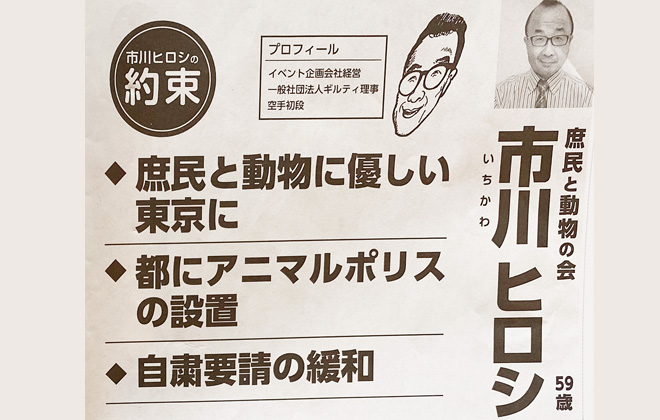 庶民と動物の会
いちかわ
市川ヒロシ
59歳
市川ヒロシの
約束
プロフィール
イベント企画会社経営
一般社団法人ギルティ理事
空手初段
◆庶民と動物に優しい
東京に
◆都にアニマルポリス
の設置
◆自粛要請の緩和